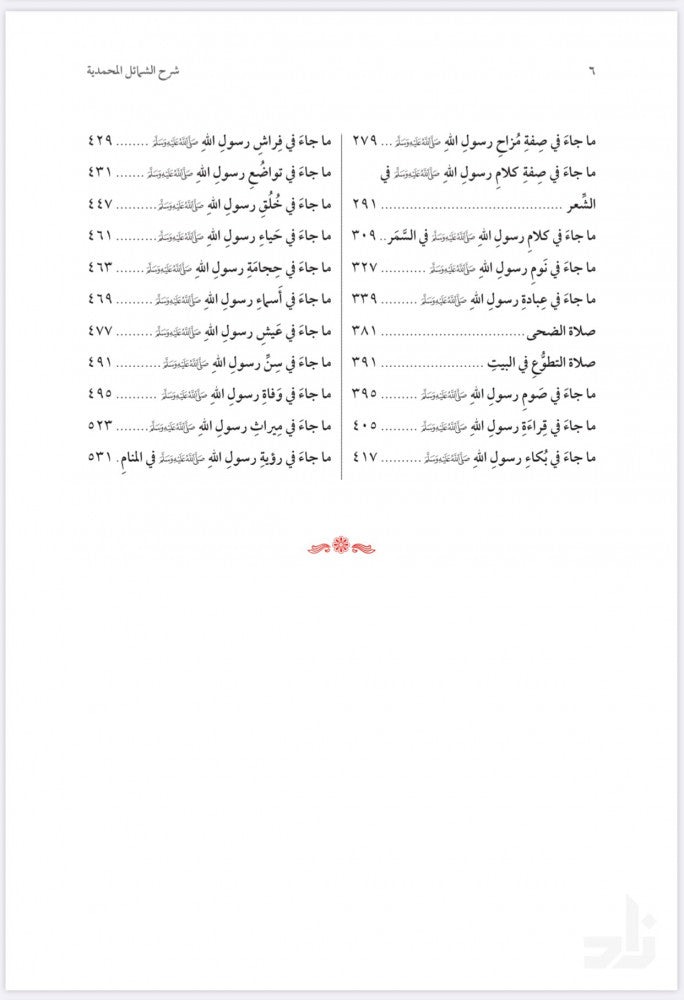 ٦
شرح الشمائل المحمدية
ما جاءَ في صِفةِ مُزاحِ رسولِ اللهِ ﷺ ... ٢٧٩
ما جاءَ في صِفةِ كلامِ رسولِ اللهِ ﷺ في
الشِّعر ........................................ ٢٩١
ما جاءَ في كلامِ رسولِ اللهِ ﷺ في السَّمَر.. ٣٠٩
ما جاءَ في نَومِ رسولِ اللهِ ﷺ ........... ٣٢٧
ما جاءَ في عِبادةِ رسولِ اللهِ ﷺ ......... ٣٣٩
صلاة الضحى............................... ٣٨١
صلاة التطوُّعِ في البيتِ ........................ ٣٩١
ما جاءَ في صَومِ رسولِ اللهِ ﷺ ......... ٣٩٥
ما جاءَ في قِراءَةِ رسولِ اللهِ ﷺ ......... ٤٠٥
ما جاءَ في بُكاءِ رسولِ اللهِ ﷺ .......... ٤١٧
ما جاءَ في فِراشِ رسولِ اللهِ ﷺ ........ ٤٢٩
ما جاءَ في تواضُعِ رسولِ اللهِ ﷺ ....... ٤٣١
ما جاءَ في خُلُقِ رسولِ اللهِ ﷺ .......... ٤٤٧
ما جاءَ في حَياءِ رسولِ اللهِ ﷺ.......... ٤٦١
ما جاءَ في حِجامَةِ رسولِ اللهِ ﷺ ....... ٤٦٣
ما جاءَ في أَسماءِ رسولِ اللهِ ﷺ ......... ٤٦٩
ما جاءَ في عَيشِ رسولِ اللهِ ﷺ ......... ٤٧٧
ما جاءَ في سِنِّ رسولِ اللهِ ﷺ ........... ٤٩١
ما جاءَ في وَفاةِ رسولِ اللهِ ﷺ .......... ٤٩٥
ما جاءَ في مِيراثِ رسولِ اللهِ ﷺ........ ٥٢٣
ما جاءَ في رؤيةِ رسولِ اللهِ ﷺ في المنامِ . ٥٣١
زاد